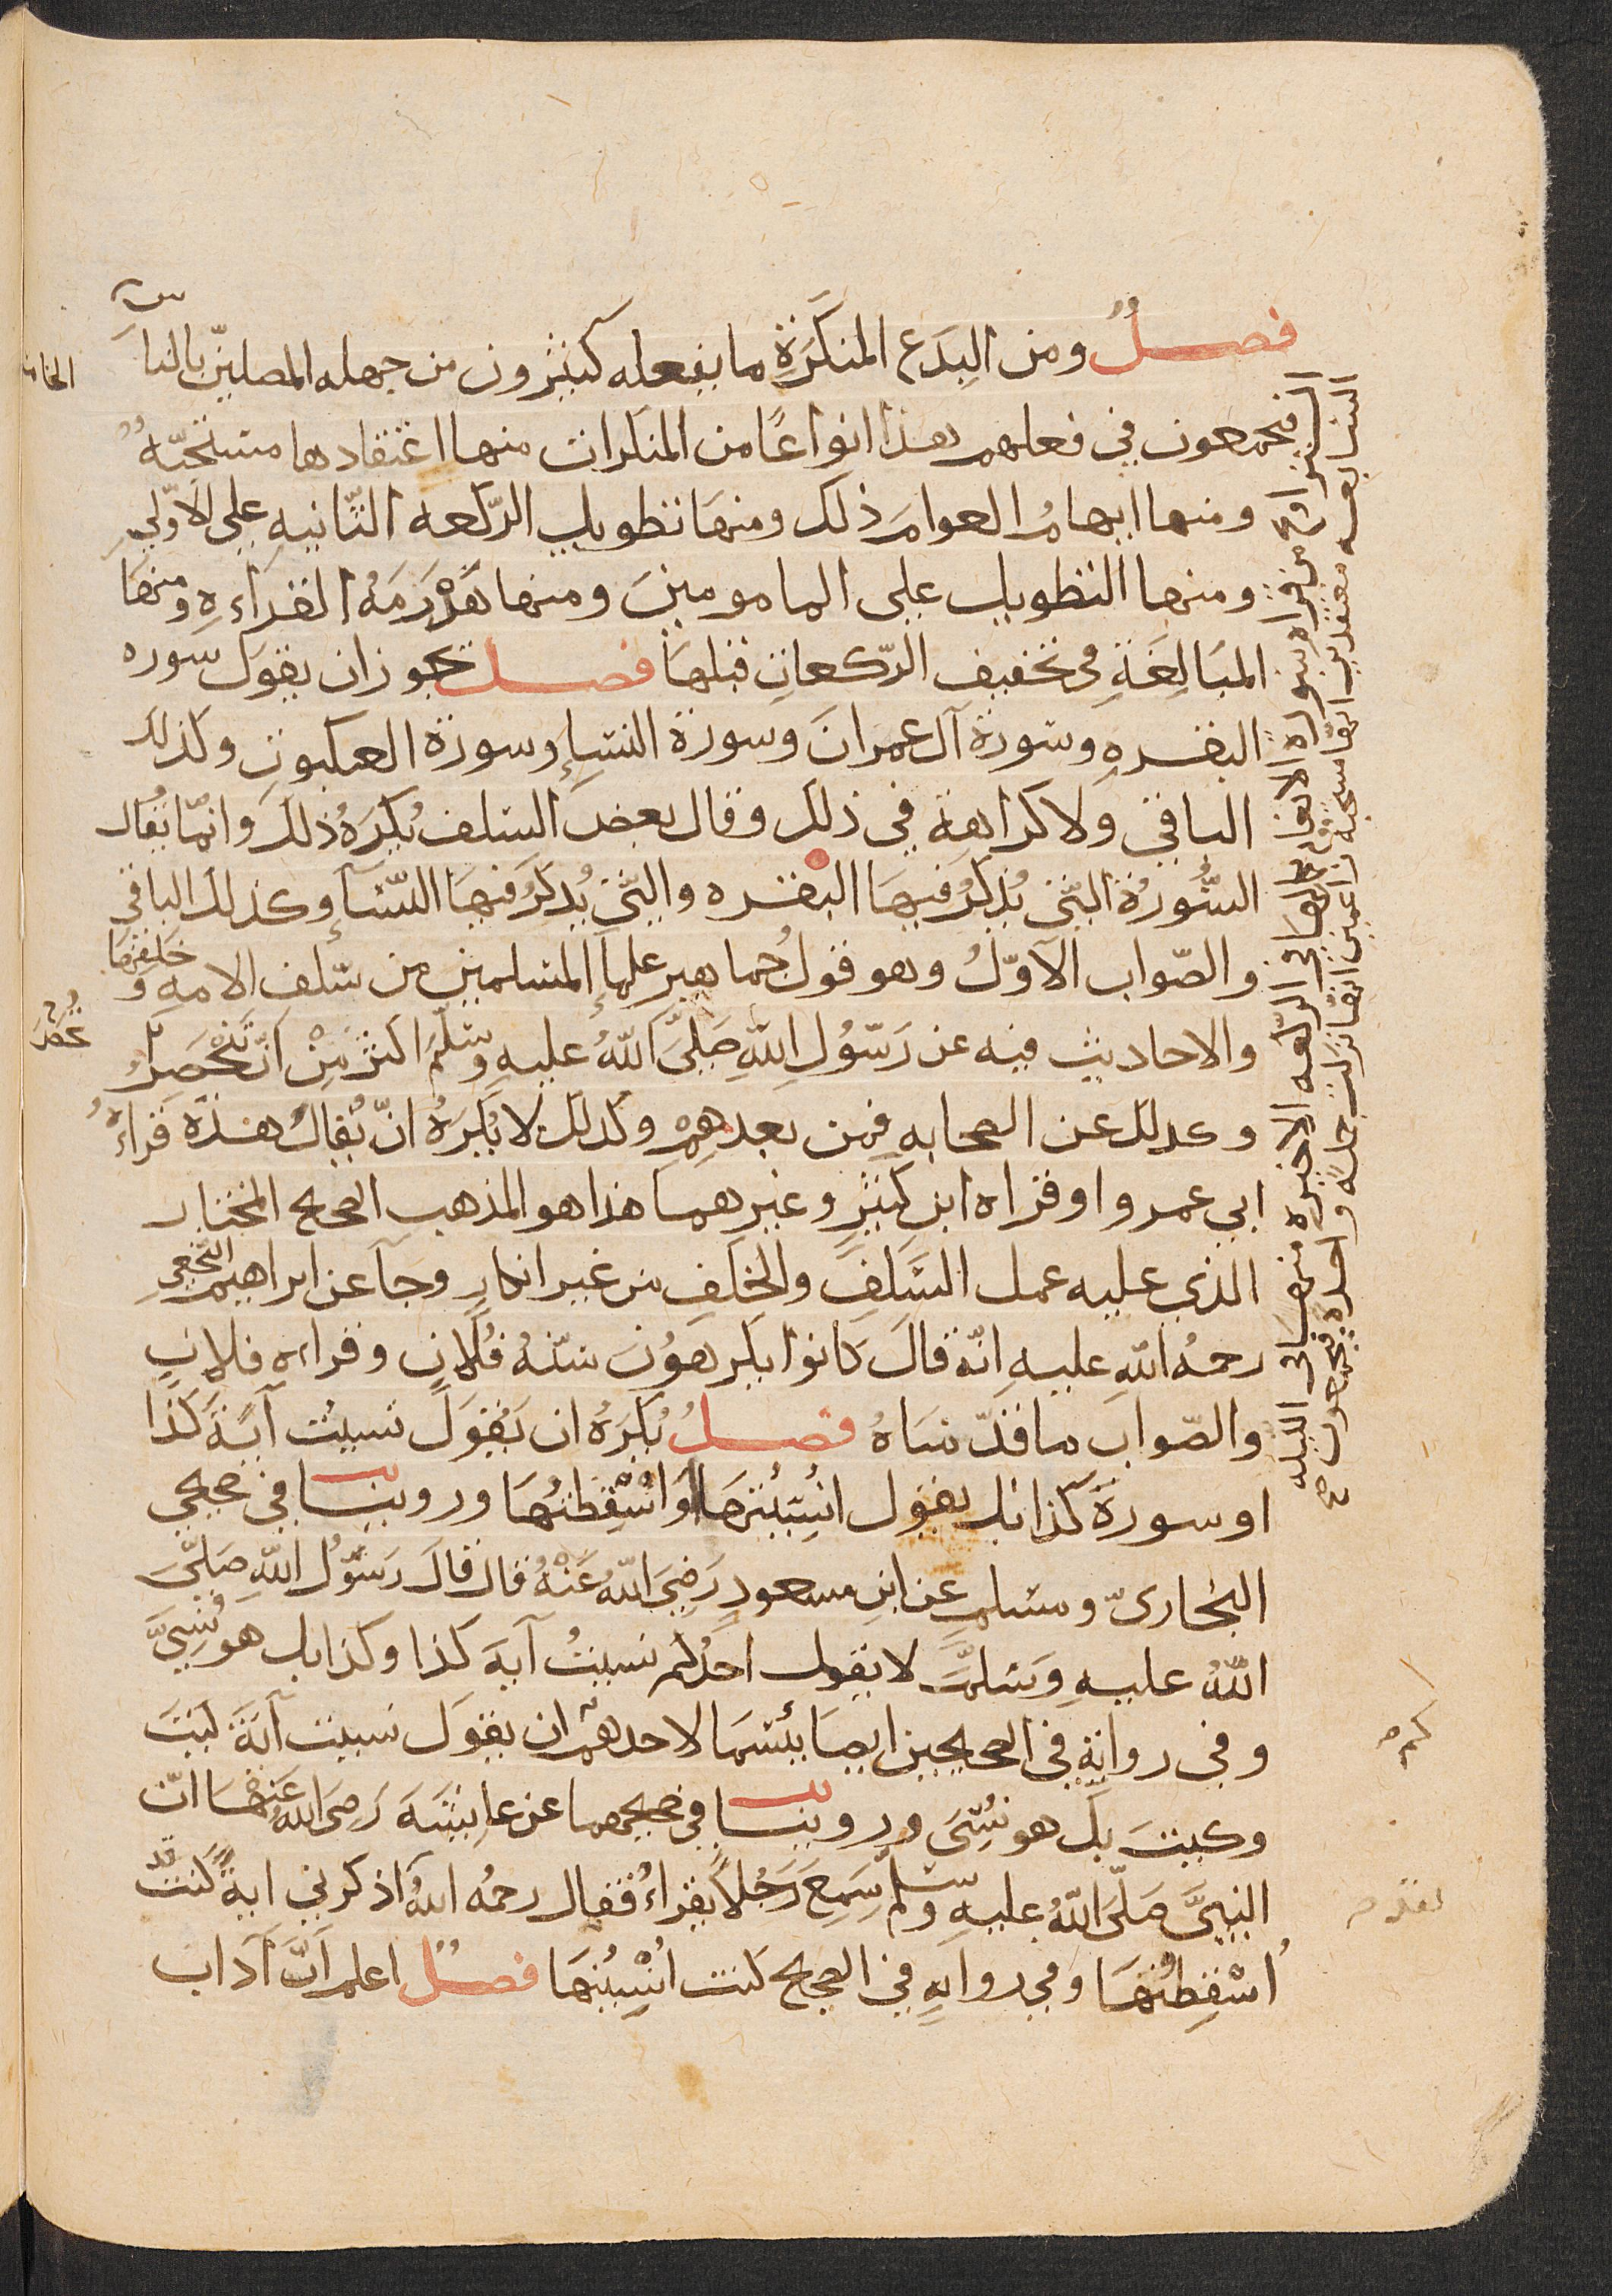 فصل ومن البدع المنكرة ما يفعله كثيرون من جهله المصلين بالناس
فيجمعون في فعلهم هذا انواعًا من المنكرات منها اعتقادها مستحبّة
ومنها ايهام العوام ذلك ومنها تطويل الركعه الثّانيه على الاولى
ومنها التطويل على المامومين ومنها هذرمة القراءه ومنها
المبالغة في تخفيف الركعات قبلها فصل يجوز ان يقول سوره
البقره وسورة آل عمران وسورة النسإ وسورة العنكبوت وكذلك
الباقي ولا كراهة في ذلك وقال بعض السلف يُكرَه ذلك وانّما يُقال
السُّورة الّتي يُذكر فيها البقره والّتي يُذكر فيها النسآء وكذلك الباقي
والصّواب الاوّل وهو قول جماهير علماء المسلمين من سلف الامه وخلفها
والاحاديث فيه عن رَسُولِ اللّهِ صَلَّى اللّهُ عليهِ وسلّم اكثر مِنْ انْ تُحْصَر
وكذلك عن الصحابه فمن بعدهِمْ وكذلك لا يُكرَهُ انْ يُقال هذه قراءَةُ
ابي عمرو او قراه ابن كثير وغيرهما هذا هو المذهب الصحيح المختار
الذي عليه عمل السَّلَفِ والخَلَفِ من غير انكارٍ وجآ عن ابراهيم النّخعي
رحمةُ اللّهِ عليهِ انّه قالَ كانوا يكرهونَ سنّةُ فُلانٍ وقراءه فلانٍ
والصّوابَ ما قدّمناهُ فصلُ يُكرَهُ ان يَقُولَ نسيتُ آيَةَ كذا
او سورةَ كذا بل يقول اُنْسِيْتُهَا او اُسْقِطْتُهَا وروينا في صحيحي
البخاريّ ومسلمٍ عن ابنِ مسعودٍ رَضِيَ اللّهُ عَنْهُ قال قالَ رَسُول اللّهِ صَلَّى
اللّهُ عليهِ وَسَلَّمَ لا يقول احَدُكم نسيتُ آيَةَ كذا وكذا بل هو نُسِّيَ
وفي روايةٍ في الصحيحين ايضًا بئسَمَا لاحدهم ان يقولَ نسيت آيَةَ كَيْتَ
وكيتَ بل هو نُسِّيَ وروينا في صحيحهما عن عايشَةَ رَضِيَ اللّهُ عَنهَا انّ
النبيَّ صَلّى اللّهُ عليهِ وسلّم سَمِعَ رَجُلًا يقراُ فقال رحمهُ اللّهُ لقد اذكرني ايةً كنت
اُسْقِطْتُهَا وفي روايهٍ في الصحيح كنت اُنْسِيْتُهَا فصلُ اعلم انَّ آدَاب